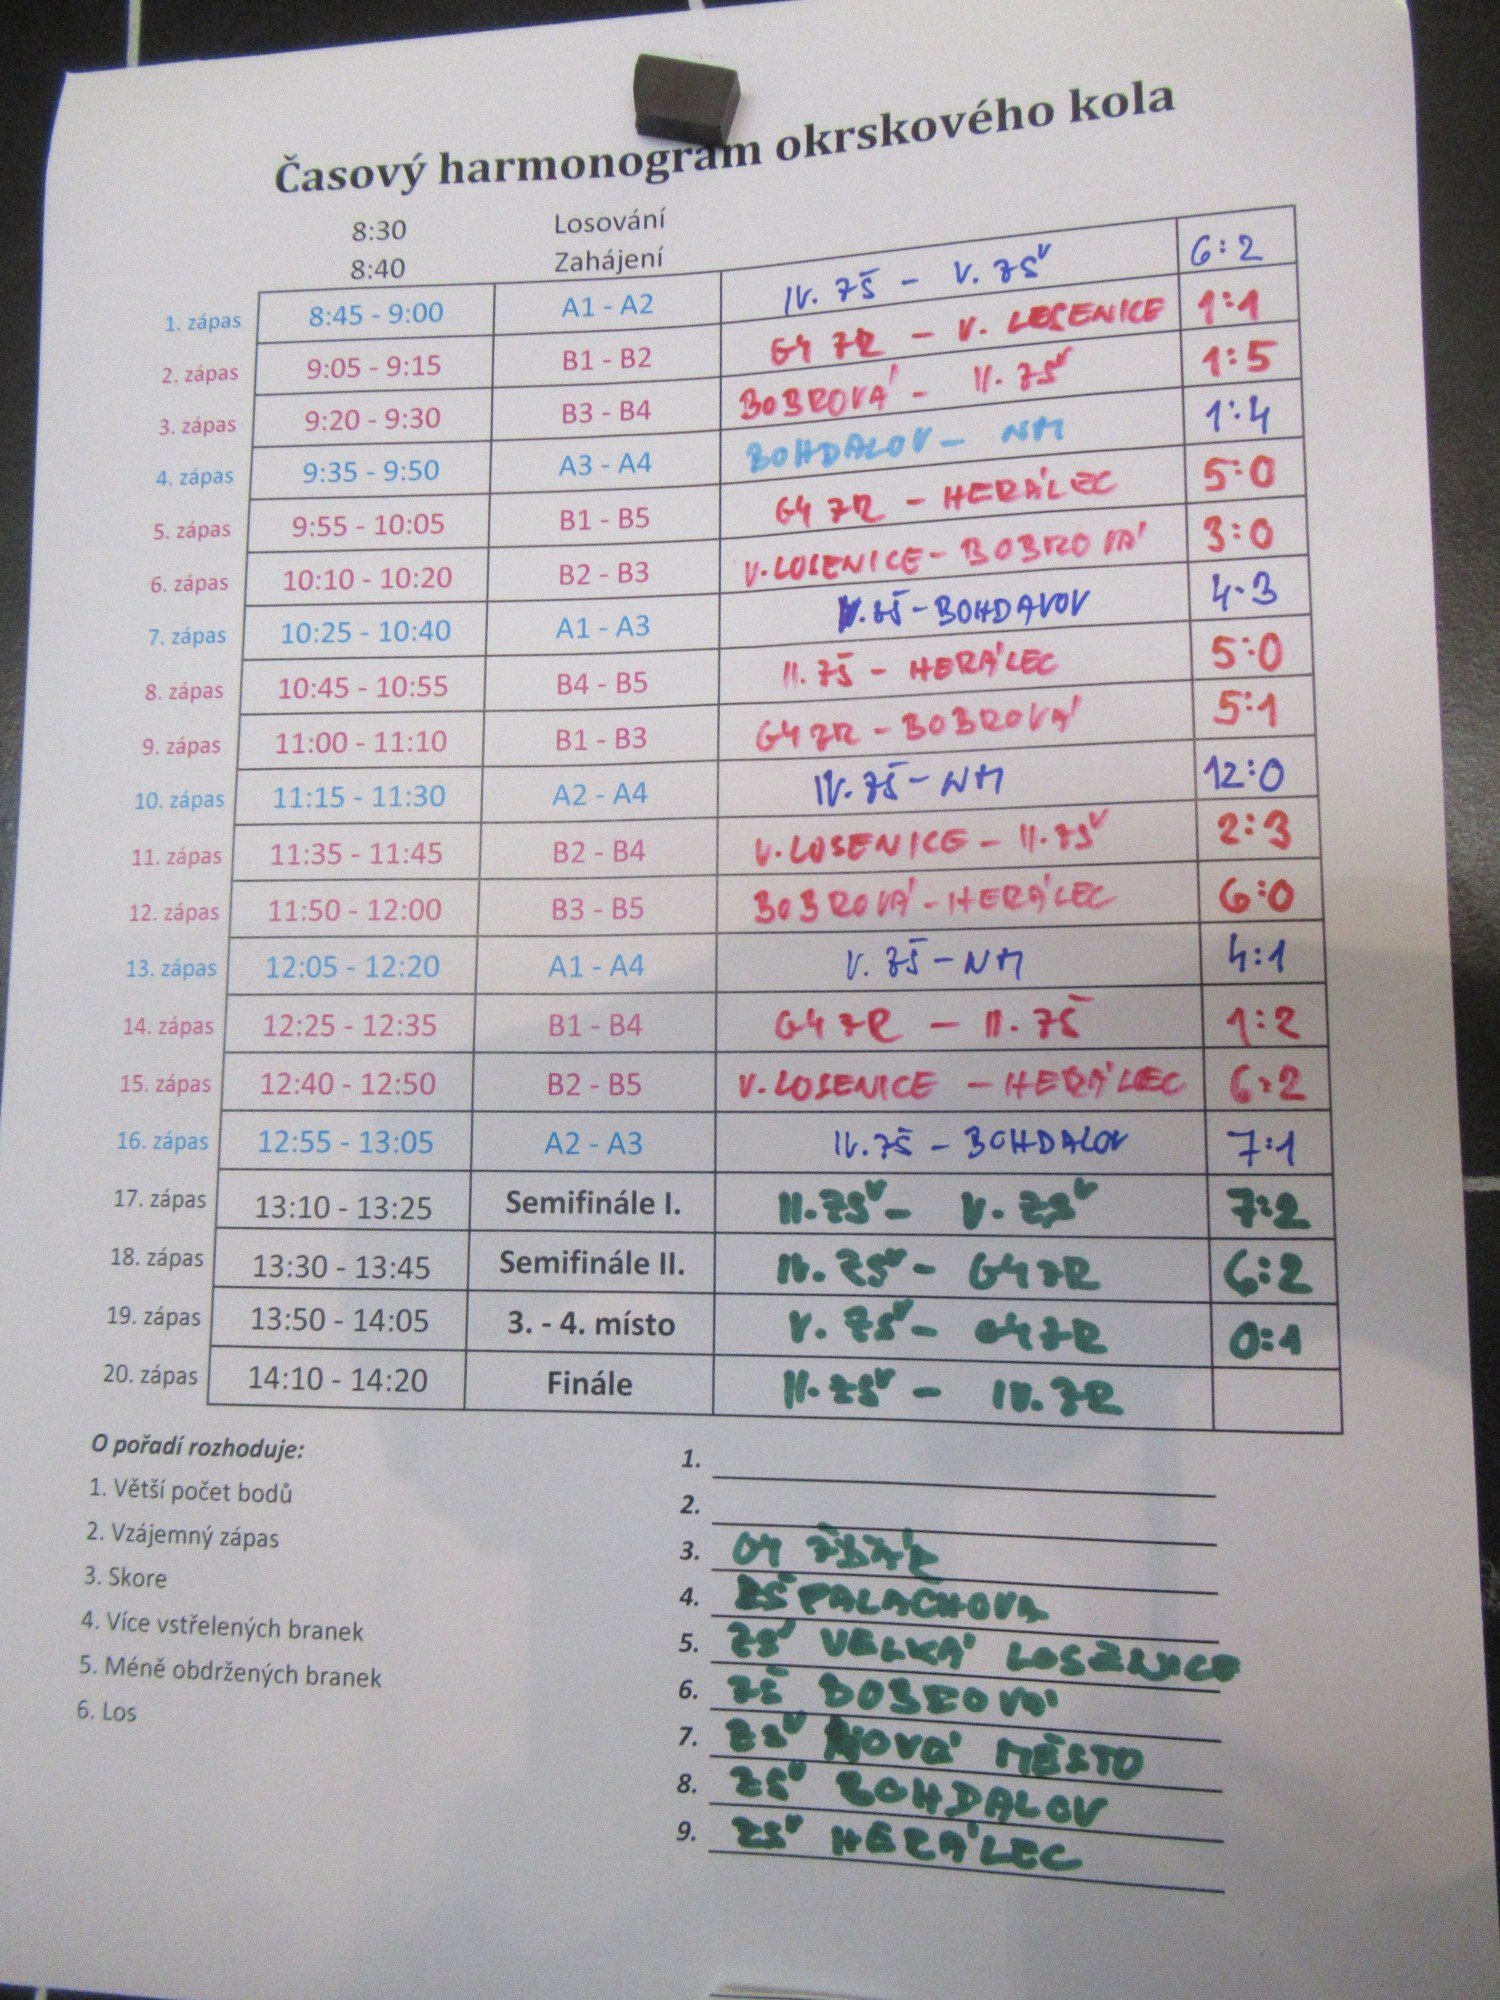 Časový harmonogram okrskového kola
8:30 Losování
8:40 Zahájení
1. zápas 8:45 - 9:00 A1 - A2 IV. ZŠ - V. ZŠ 6:2
2. zápas 9:05 - 9:15 B1 - B2 GY ZR - V. LOSENICE 1:1
3. zápas 9:20 - 9:30 B3 - B4 BOBROVÁ - II. ZŠ 1:5
4. zápas 9:35 - 9:50 A3 - A4 BOHDALOV - NM 1:4
5. zápas 9:55 - 10:05 B1 - B5 GY ZR - HERÁLEC 5:0
6. zápas 10:10 - 10:20 B2 - B3 V. LOSENICE - BOBROVÁ 3:0
7. zápas 10:25 - 10:40 A1 - A3 V. ZŠ - BOHDALOV 4:3
8. zápas 10:45 - 10:55 B4 - B5 II. ZŠ - HERÁLEC 5:0
9. zápas 11:00 - 11:10 B1 - B3 GY ZR - BOBROVÁ 5:1
10. zápas 11:15 - 11:30 A2 - A4 IV. ZŠ - NM 12:0
11. zápas 11:35 - 11:45 B2 - B4 V. LOSENICE - II. ZŠ 2:3
12. zápas 11:50 - 12:00 B3 - B5 BOBROVÁ - HERÁLEC 6:0
13. zápas 12:05 - 12:20 A1 - A4 V. ZŠ - NM 4:1
14. zápas 12:25 - 12:35 B1 - B4 GY ZR - II. ZŠ 1:2
15. zápas 12:40 - 12:50 B2 - B5 V. LOSENICE - HERÁLEC 6:2
16. zápas 12:55 - 13:05 A2 - A3 IV. ZŠ - BOHDALOV 7:1
17. zápas 13:10 - 13:25 Semifinále I. II. ZŠ - V. ZŠ 7:2
18. zápas 13:30 - 13:45 Semifinále II. IV. ZŠ - GY ZR 6:2
19. zápas 13:50 - 14:05 3. - 4. místo V. ZŠ - GY ZR 0:1
20. zápas 14:10 - 14:20 Finále II. ZŠ - IV. ZR
O pořadí rozhoduje:
1. Větší počet bodů
2. Vzájemný zápas
3. Skore
4. Více vstřelených branek
5. Méně obdržených branek
6. Los
1.
2.
3. GY ŽĎÁR
4. ZŠ PALACHOVA
5. ZŠ VELKÁ LOSENICE
6. ZŠ BOBROVÁ
7. ZŠ NOVÉ MĚSTO
8. ZŠ BOHDALOV
9. ZŠ HERÁLEC